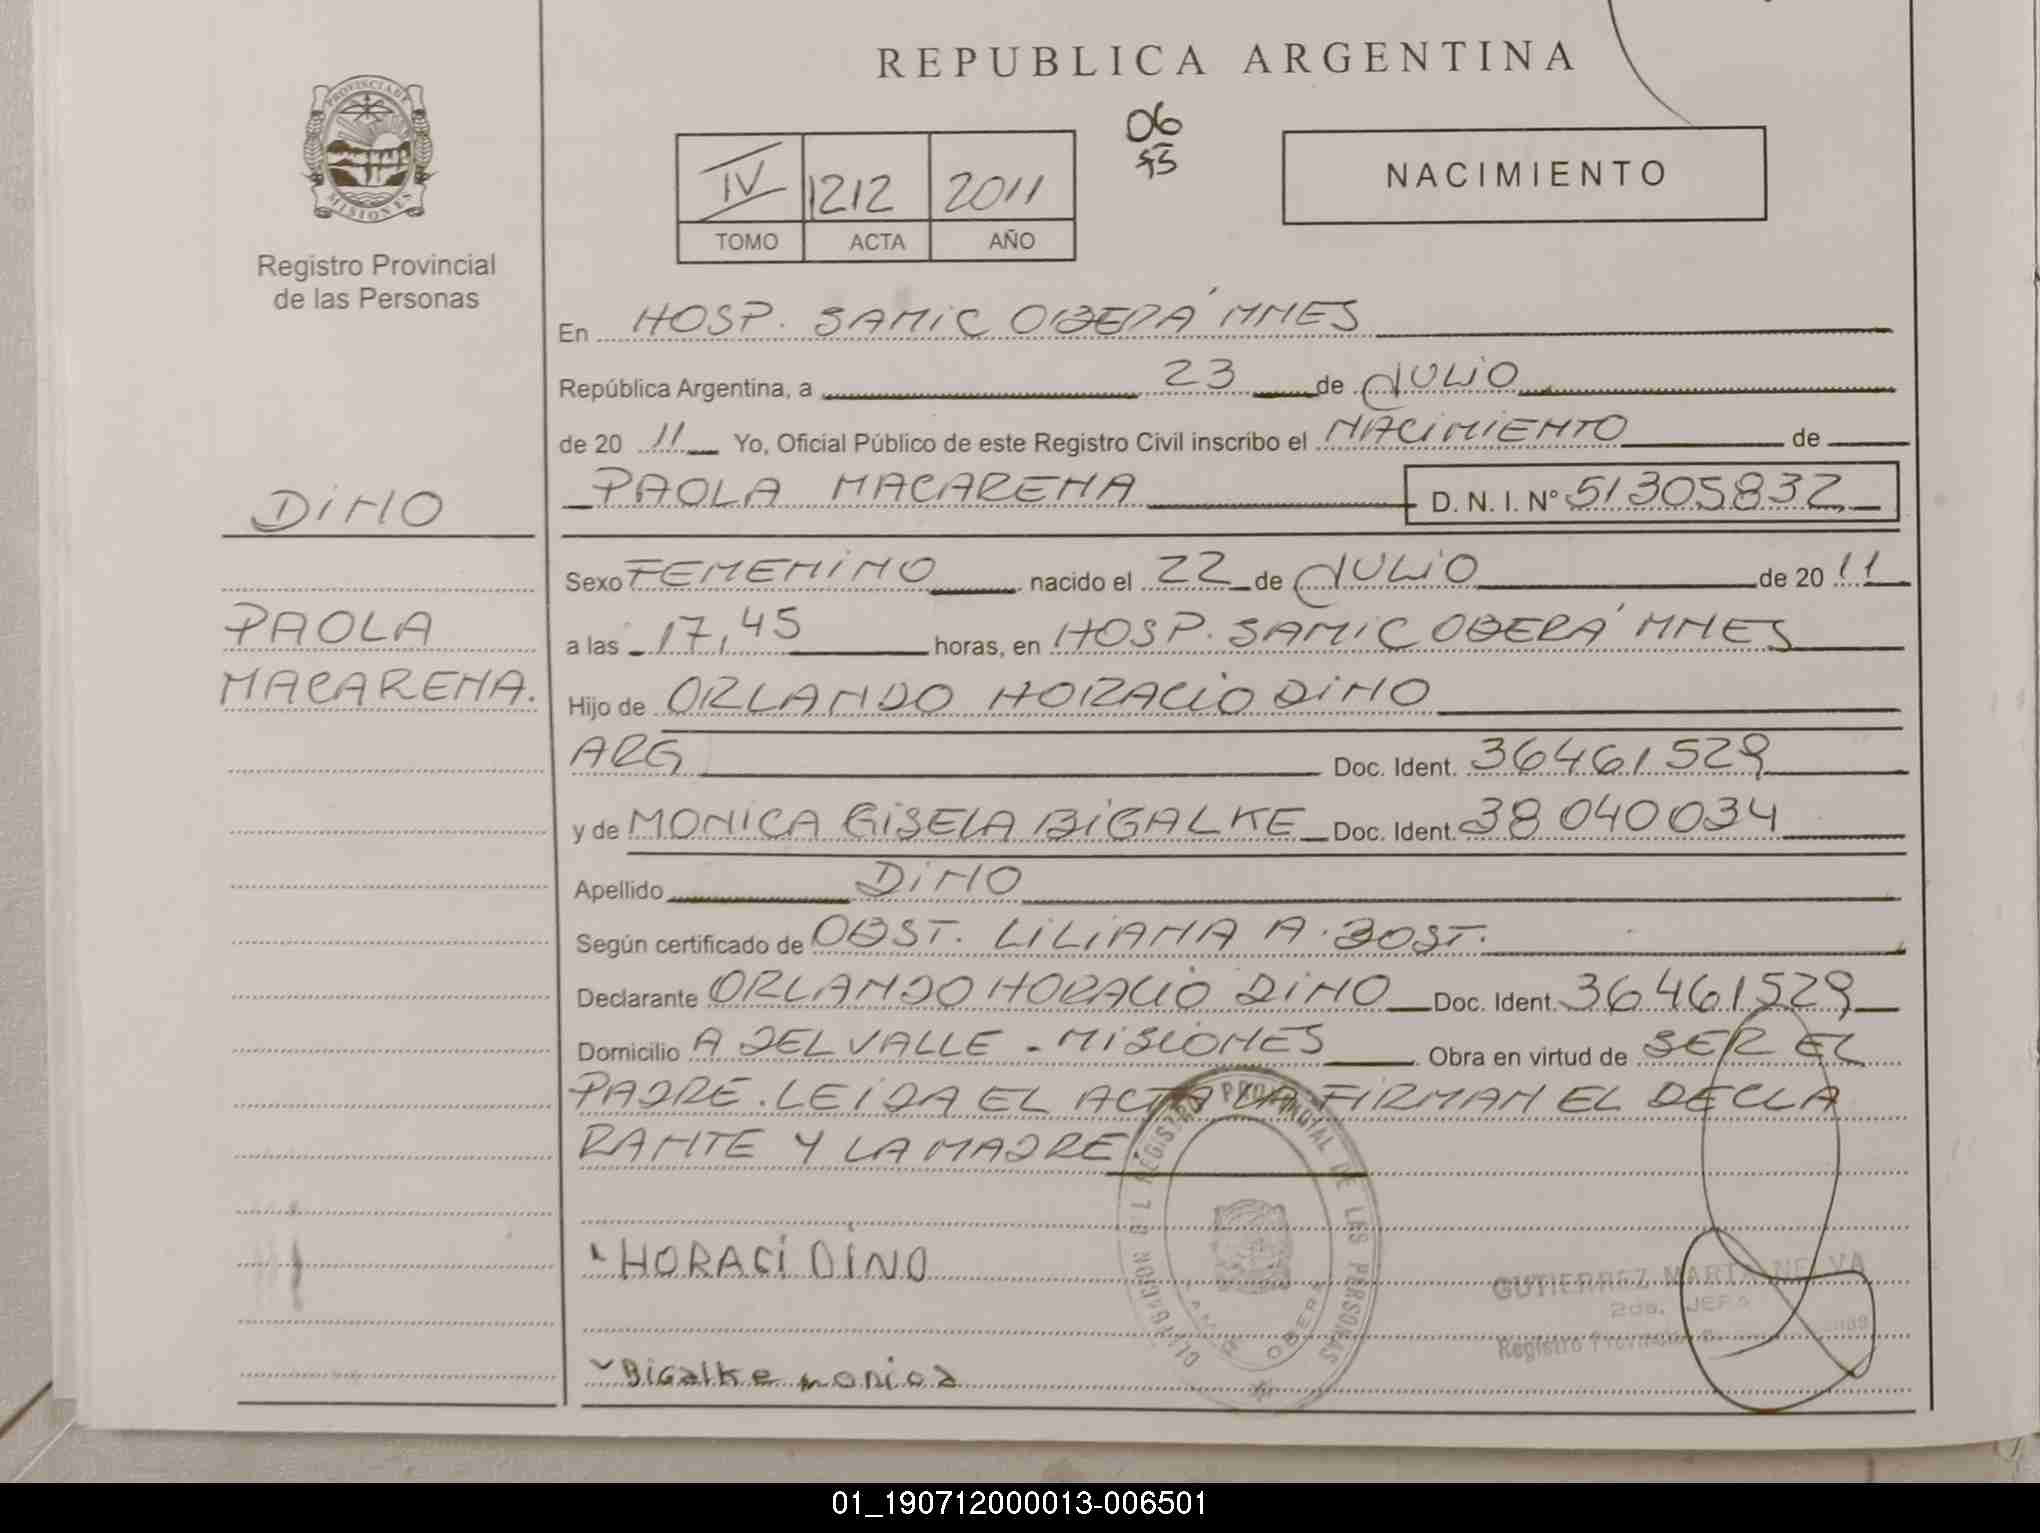 REPUBLICA ARGENTINA
PROVINCIA DE
MISIONES
Registro Provincial
de las Personas
06
IV 1212 2011
TOMO ACTA AÑO
NACIMIENTO
En HOSP. SAMIC OBERÁ MNES
República Argentina, a 23 de JULIO
de 20 11 Yo, Oficial Público de este Registro Civil inscribo el NACIMIENTO de
DINO
PAOLA MACARENA D. N. I. Nº 51305832
Sexo FEMENINO nacido el 22 de JULIO de 20 11
PAOLA
MACARENA.
a las 17,45 horas, en HOSP. SAMIC OBERÁ MNES
Hijo de ORLANDO HORACIO DINO
ARG Doc. Ident. 36461529
y de MONICA GISELA BIGALKE Doc. Ident. 38 040034
Apellido DINO
Según certificado de OBST. LILIANA A. BOST.
Declarante ORLANDO HORACIO DINO Doc. Ident. 36461529
Domicilio A DEL VALLE - MISIONES Obra en virtud de SER EL
PADRE. LEIDA EL ACTA LA FIRMAN EL DECLA
RANTE Y LA MADRE
HORACI DINO
BIGalke monica
DELEGACION DEL REGISTRO PROVINCIAL DE LAS PERSONAS
OBERA
GUTIERREZ MARTA NELVA
2da. JEFA
Registro Provincial
01_190712000013-006501